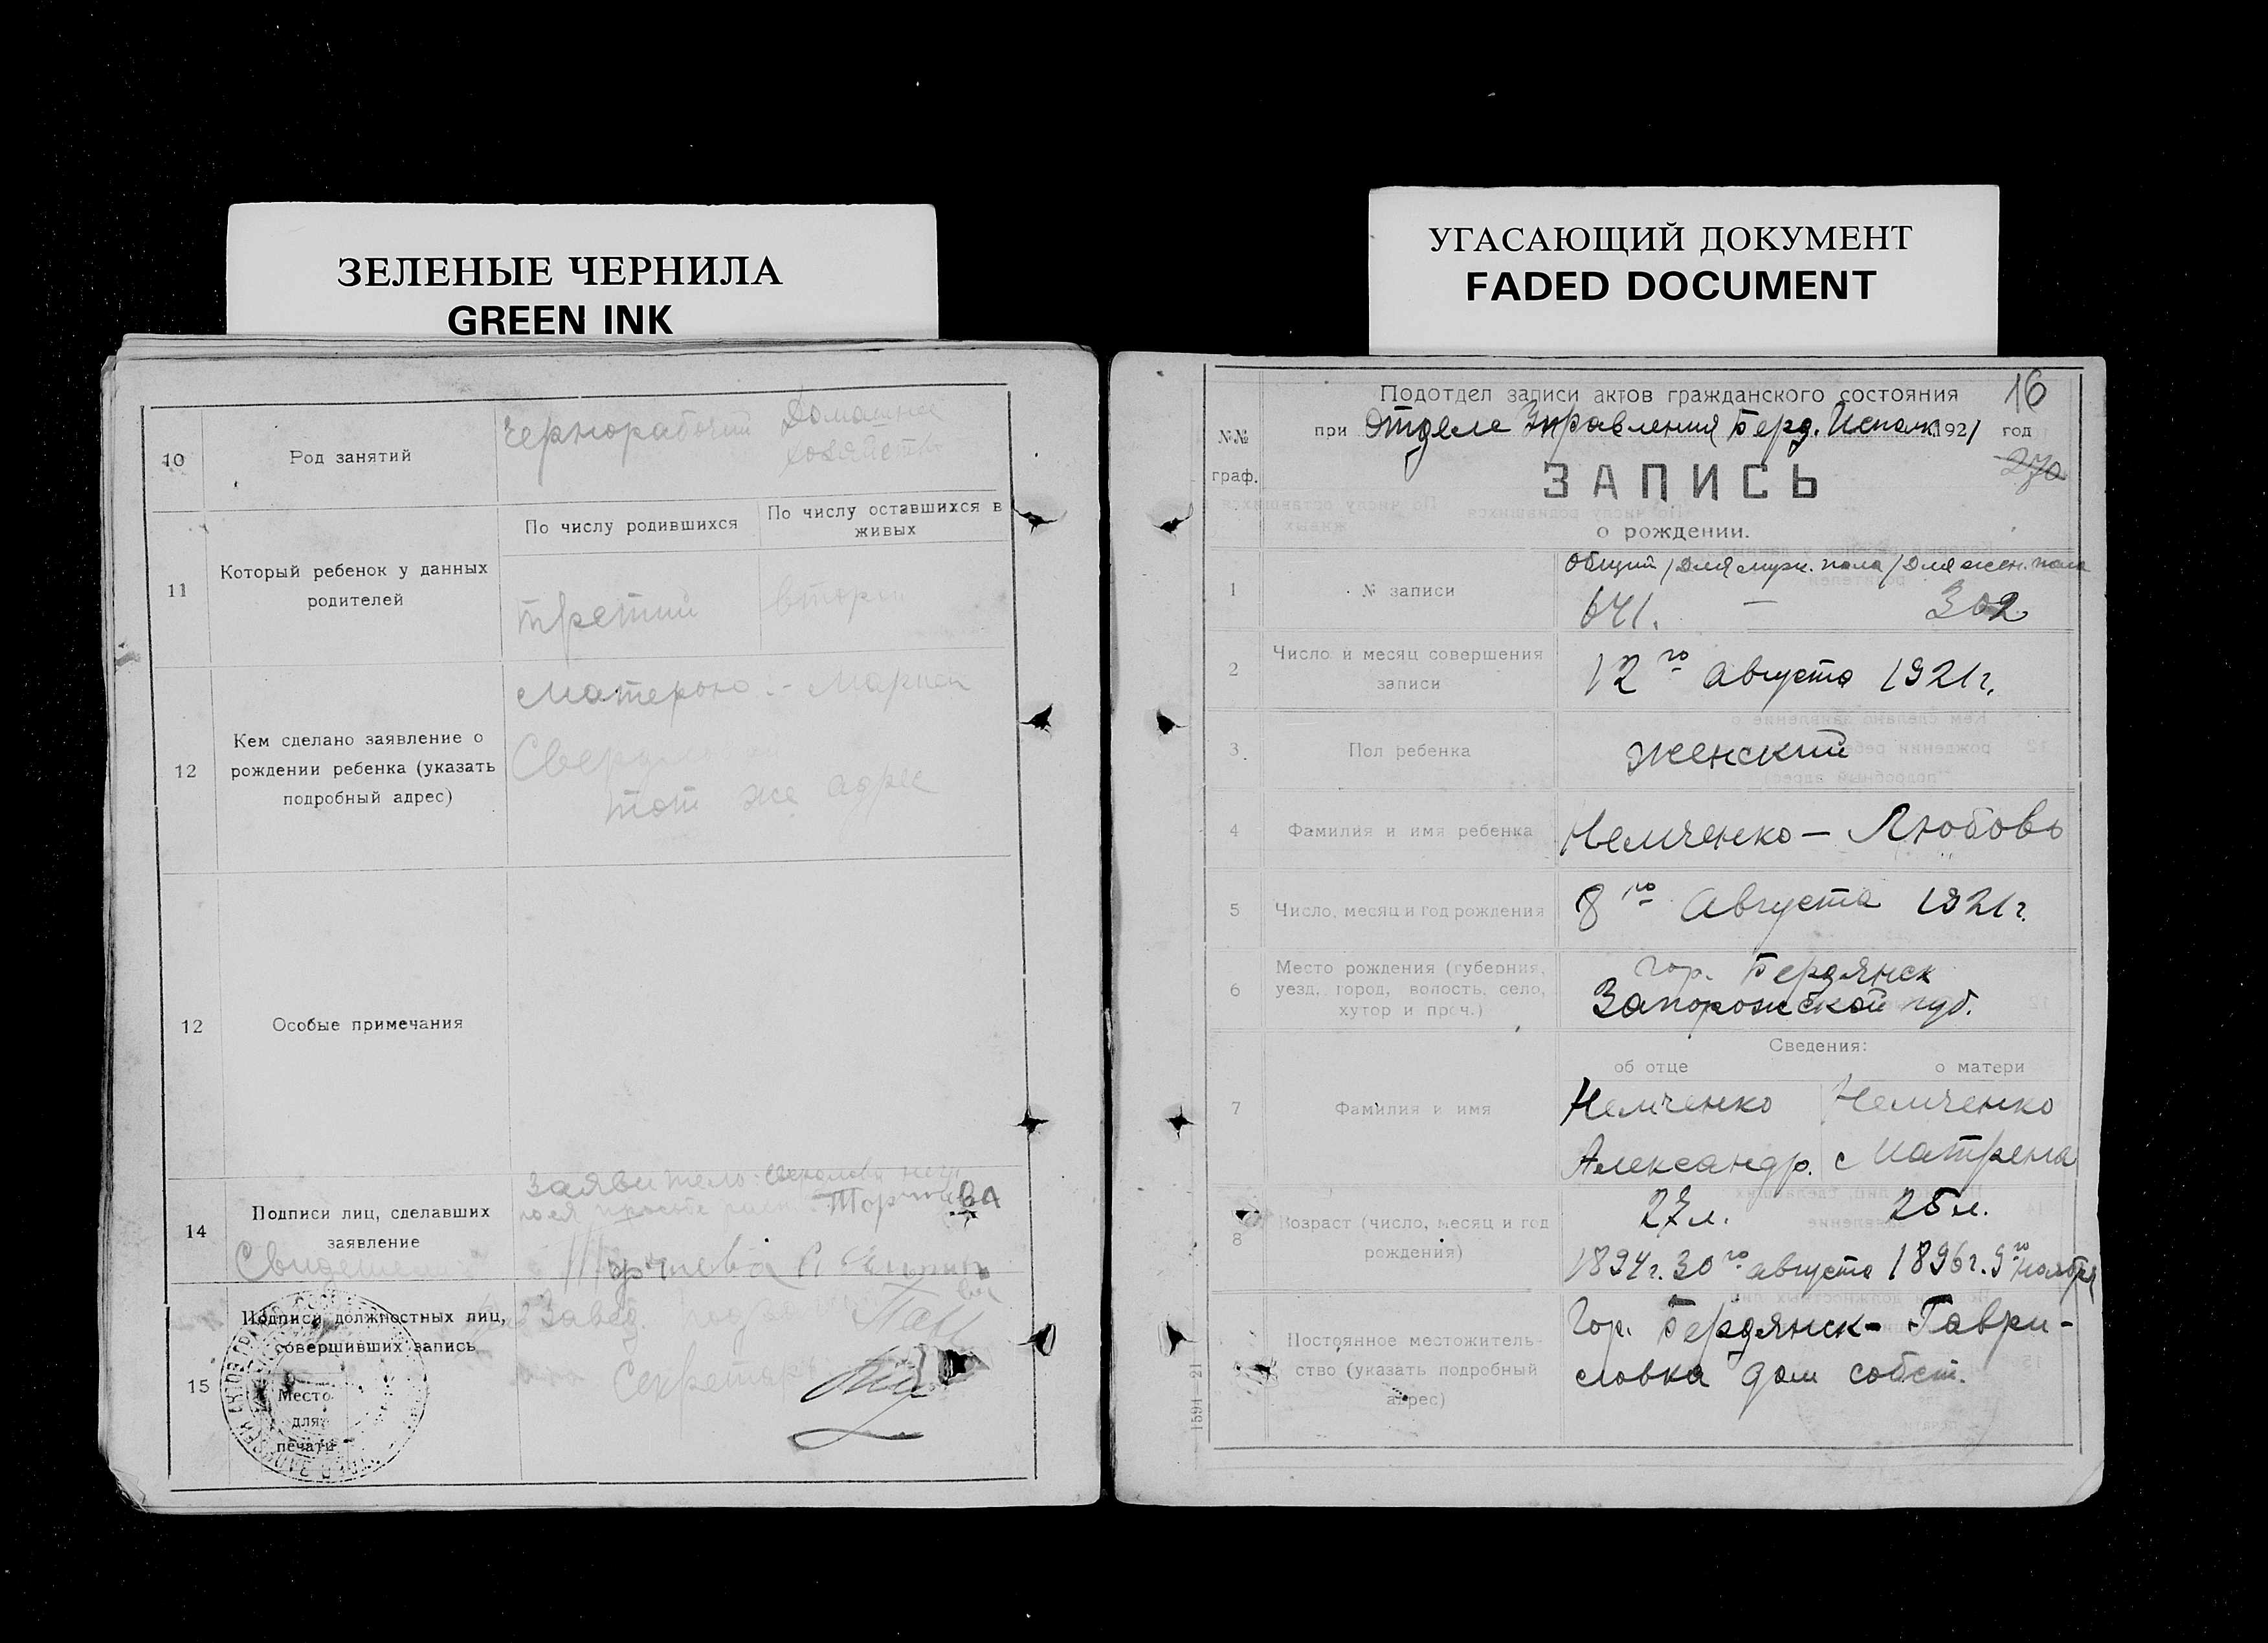 ЗЕЛЕНЫЕ ЧЕРНИЛА
GREEN INK
10
Род занятий
Чернорабочий
Домашнее
хозяйство
11
Который ребенок у данных
родителей
По числу родившихся
По числу оставшихся в
живых
третий
второй
12
Кем сделано заявление о
рождении ребенка (указать
подробный адрес)
Матерью :- Марией
тот же адрес
12
Особые примечания
14
Подписи лиц, сделавших
заявление
Заявитель:
15
Подписи должностных лиц,
совершивших запись
Место
для
печати
Завед.
Секретарь
УГАСАЮЩИЙ ДОКУМЕНТ
FADED DOCUMENT
№№
граф.
Подотдел записи актов гражданского состояния
16
при Отделе Управления Берд. Исполк. 1921 год
27а
ЗАПИСЬ
о рождении.
1
№ записи
Общий / Для муж. пола / Для жен. пола
641. — 302
2
Число и месяц совершения
записи
12го августа 1921г.
3
Пол ребенка
женский
4
Фамилия и имя ребенка
Немченко — Любовь
5
Число, месяц и год рождения
8го Августа 1921г.
6
Место рождения (губерния,
уезд, город, волость, село,
хутор и проч.)
Гор. Бердянск
Запорожской губ.
Сведения:
об отце
о матери
7
Фамилия и имя
Немченко
Александр.
Немченко
Матрена
8
Возраст (число, месяц и год
рождения)
27л.
25л.
1894г. 30го августа
1896г. 9го ноября
9
Постоянное местожитель-
ство (указать подробный
адрес)
Гор. Бердянск- Гаври-
словка дом собст.
1591—21